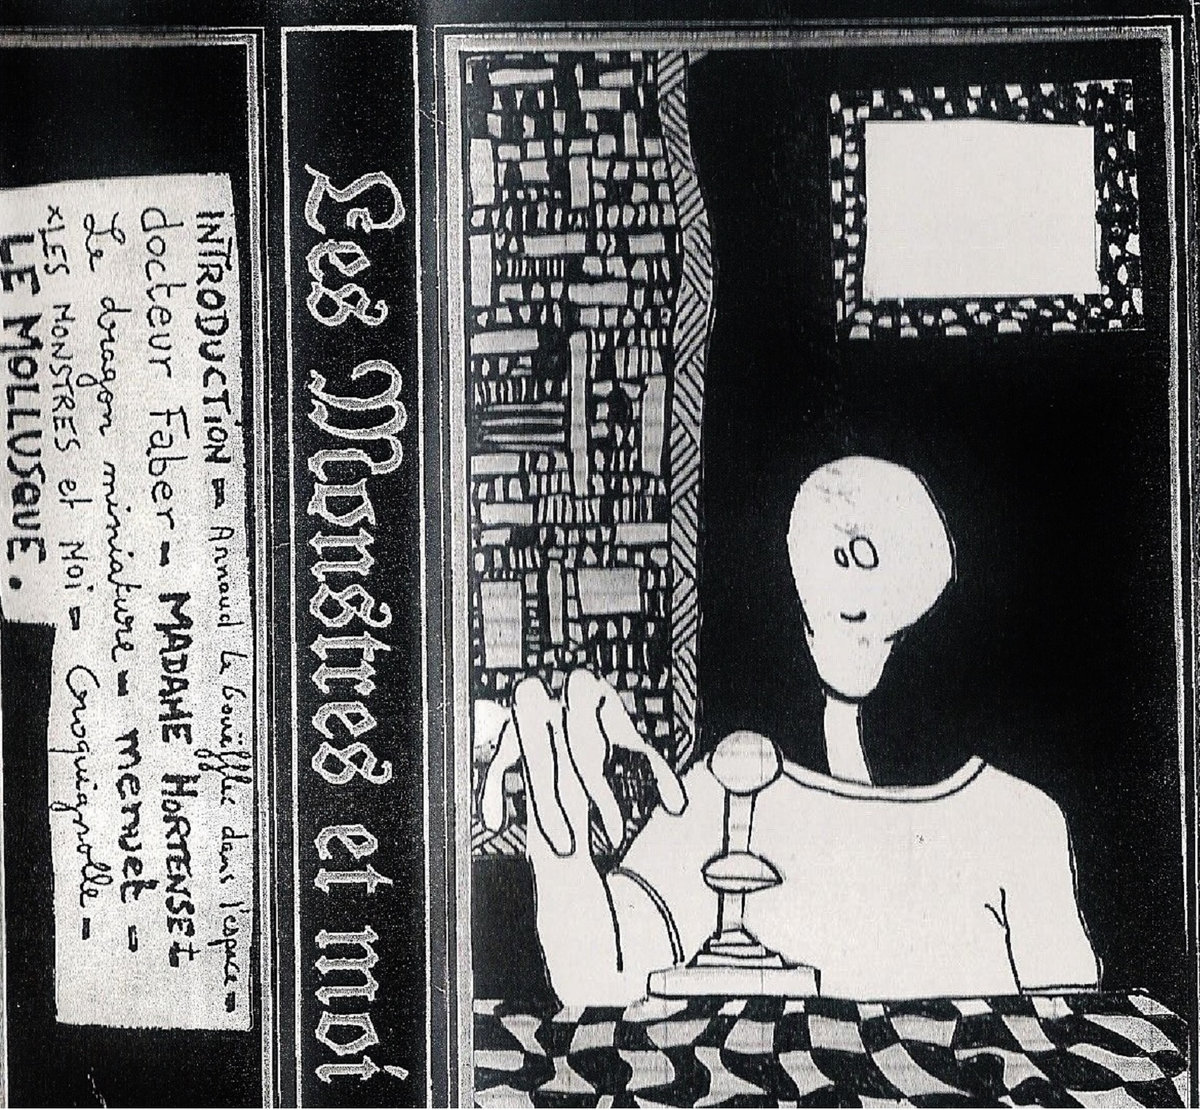 Les Monstres et moi
INTRODUCTION - Arnaud le bouëffec dans l'espace -
docteur Faber - MADAME HORTENSE +
Le dragon miniature - menuet -
xLES MONSTRES et MOi - Croquignolle -
LE MOLLUSQUE.